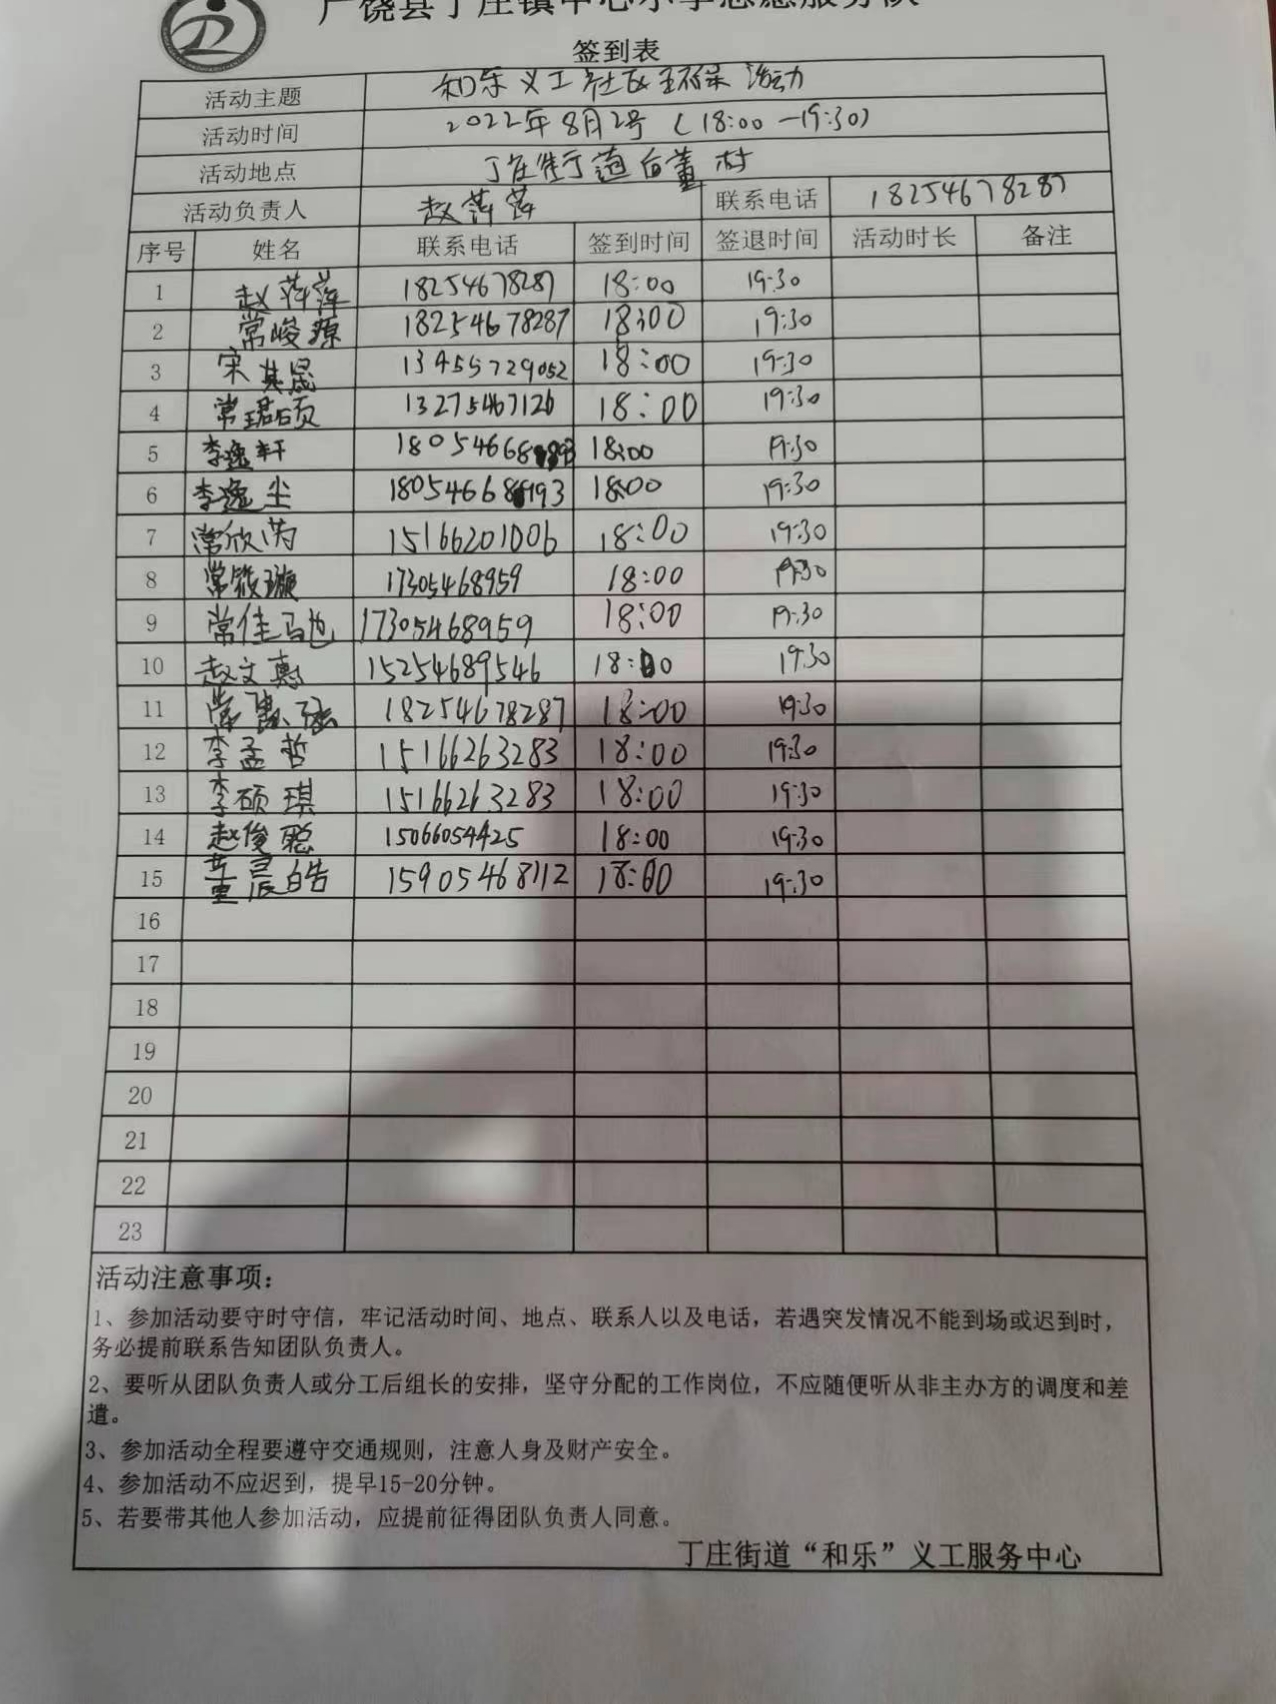 广饶县丁庄镇中心小学志愿服务队
签到表
活动主题 和乐义工社区环保活动
活动时间 2022年8月2号（18:00—19:30）
活动地点 丁庄街道后董村
活动负责人 赵萍萍 联系电话 18254678287
序号 姓名 联系电话 签到时间 签退时间 活动时长 备注
1 赵萍萍 18254678287 18:00 19:30
2 常峻源 18254678287 18:00 19:30
3 宋其晟 13455729052 18:00 19:30
4 常珺硕 13275467126 18:00 19:30
5 李逸轩 18:00 19:30
6 李逸尘 18:00 19:30
7 常欣芮 15166201006 18:00 19:30
8 常筱璇 17305468959 18:00 19:30
9 常佳 17305468959 18:00 19:30
10 赵文惠 15254689546 18:00 19:30
11 常 18254678287 18:00 19:30
12 李孟哲 15166263283 18:00 19:30
13 李硕琪 15166263283 18:00 19:30
14 赵俊聪 15066054425 18:00 19:30
15 董晨皓 15905468112 18:00 19:30
16
17
18
19
20
21
22
23
活动注意事项：
1、参加活动要守时守信，牢记活动时间、地点、联系人以及电话，若遇突发情况不能到场或迟到时，
务必提前联系告知团队负责人。
2、要听从团队负责人或分工后组长的安排，坚守分配的工作岗位，不应随便听从非主办方的调度和差
遣。
3、参加活动全程要遵守交通规则，注意人身及财产安全。
4、参加活动不应迟到，提早15-20分钟。
5、若要带其他人参加活动，应提前征得团队负责人同意。
丁庄街道“和乐”义工服务中心